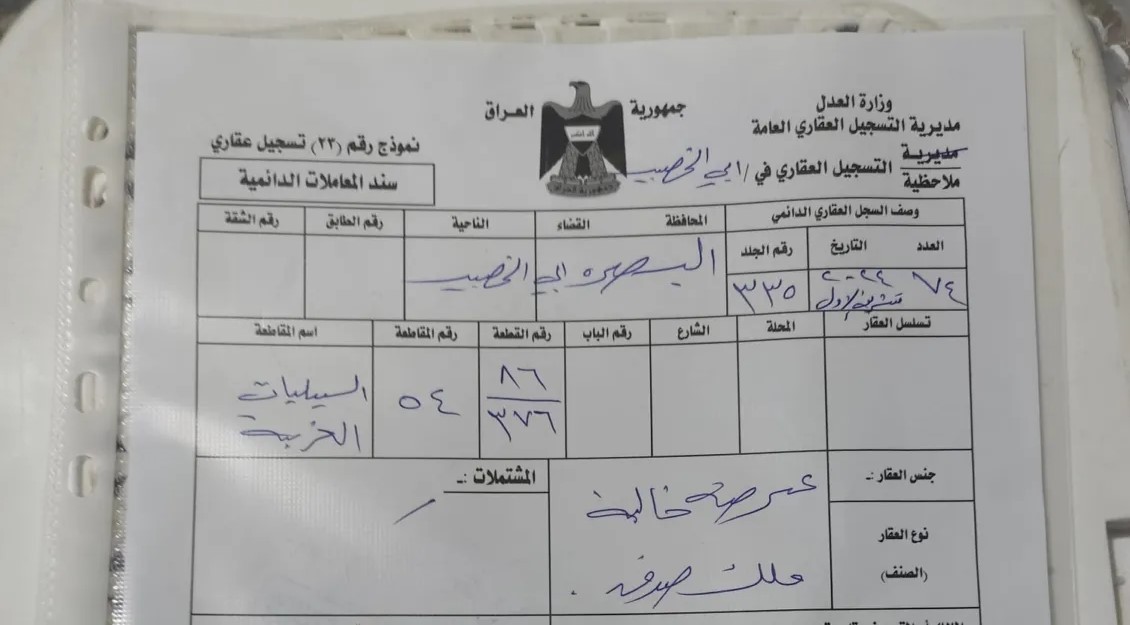 وزارة العدل
مديرية التسجيل العقاري العامة
مديرية
ملاحظية
التسجيل العقاري في / ابي الخصيب
جمهورية العراق
نموذج رقم (٢٣) تسجيل عقاري
سند المعاملات الدائمية
وصف السجل العقاري الدائمي
المحافظة القضاء الناحية رقم الطابق رقم الشقة
العدد التاريخ رقم الجلد
٧٤ ٢٠٢٤ تشرين الاول ٣٣٥
البصره ابي الخصيب
تسلسل العقار المحلة الشارع رقم الباب رقم القطعة رقم المقاطعة اسم المقاطعة
٨٦
٣٧٦
٥٤
السبيليات
الغربية
جنس العقار :ـ
عرصة خالية
المشتملات :ـ
نوع العقار
(الصنف)
ملك صرف .